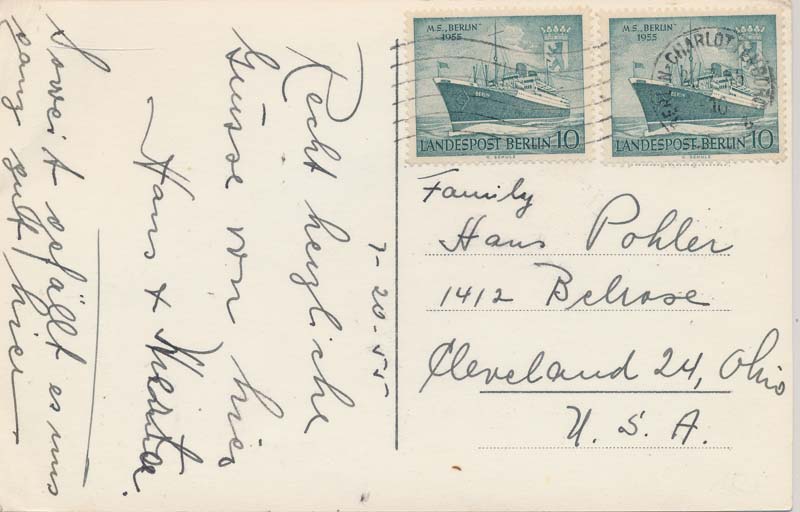 7-20-55
Recht herzliche
Grüsse von hier
Hans &
Soweit gefällt es uns
ganz gut hier.
M.S. „BERLIN"
1955
BERLIN
LANDESPOST BERLIN 10
M.S. „BERLIN"
1955
BERLIN
LANDESPOST BERLIN 10
Family
Hans Pohler
1412 Belrose
Cleveland 24, Ohio
U. S. A.